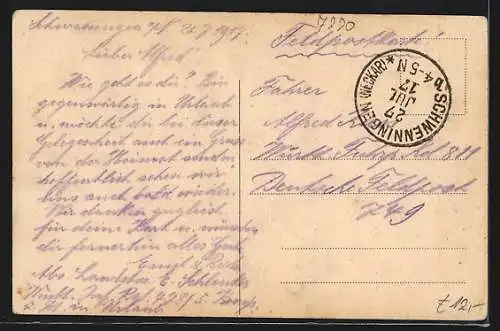 Schwenningen a/N 27.7.1917.
Lieber Alfred!
Wie geht es dir? Bin
gegenwärtig in Urlaub
u. möchte dir bei dieser
Gelegenheit auch ein Gruss
von der Heimat senden
hoffentlich sehen wir
uns auch bald wieder.
Wir danken zugleich
für deine Kart u. wünschen
dir fernerhin alles Gute
Abs. Landstm. E.
Württ. Inf. Reg. 478/5. Komp.
z. Zt. in Urlaub.
7220
Feldpostkarte!
Fahrer
Alfred
Württ.
Deutsche Feldpost
749
SCHWENNINGEN (NECKAR) *
27
JUL
17
4-5 N
b
£ 12,-